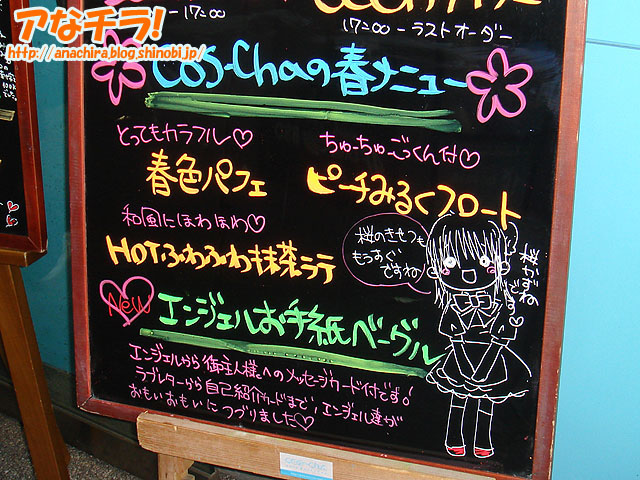 アなチラ!
http://anachira.blog.shinobi.jp/
-17:00
17:00-ラストオーダー
COS-Chaの春メニュー
とってもカラフル♡
春色パフェ
ちゅーちゅーごっくん付♡
ピーチみるくフロート
和風にほわほわ♡
HOTふわふわ抹茶ラテ
桜のきせつも
もうすぐ
ですね♪
桜かずね
です♡
New
エンジェルお手紙ベーグル
エンジェルから御主人様へのメッセージカード付です!
ラブレターから自己紹介カードまで、エンジェル達が
おもいおもいにつづりました♡